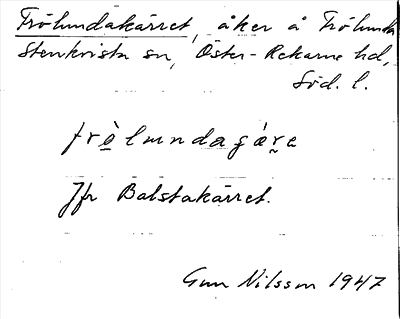 Frölundakärret, åker å Frölunda
Stenkvista sn, Öster-Rekarne hd,
Söd. l.
frö̀lundagǽre
Jfr Balstakärret.
Gun Nilsson 1947